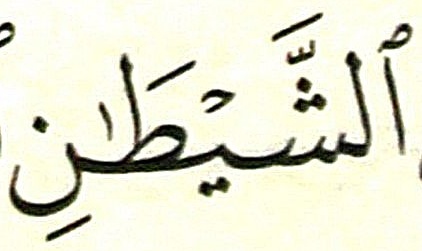 ٱلشَّيۡطَـٰنِ